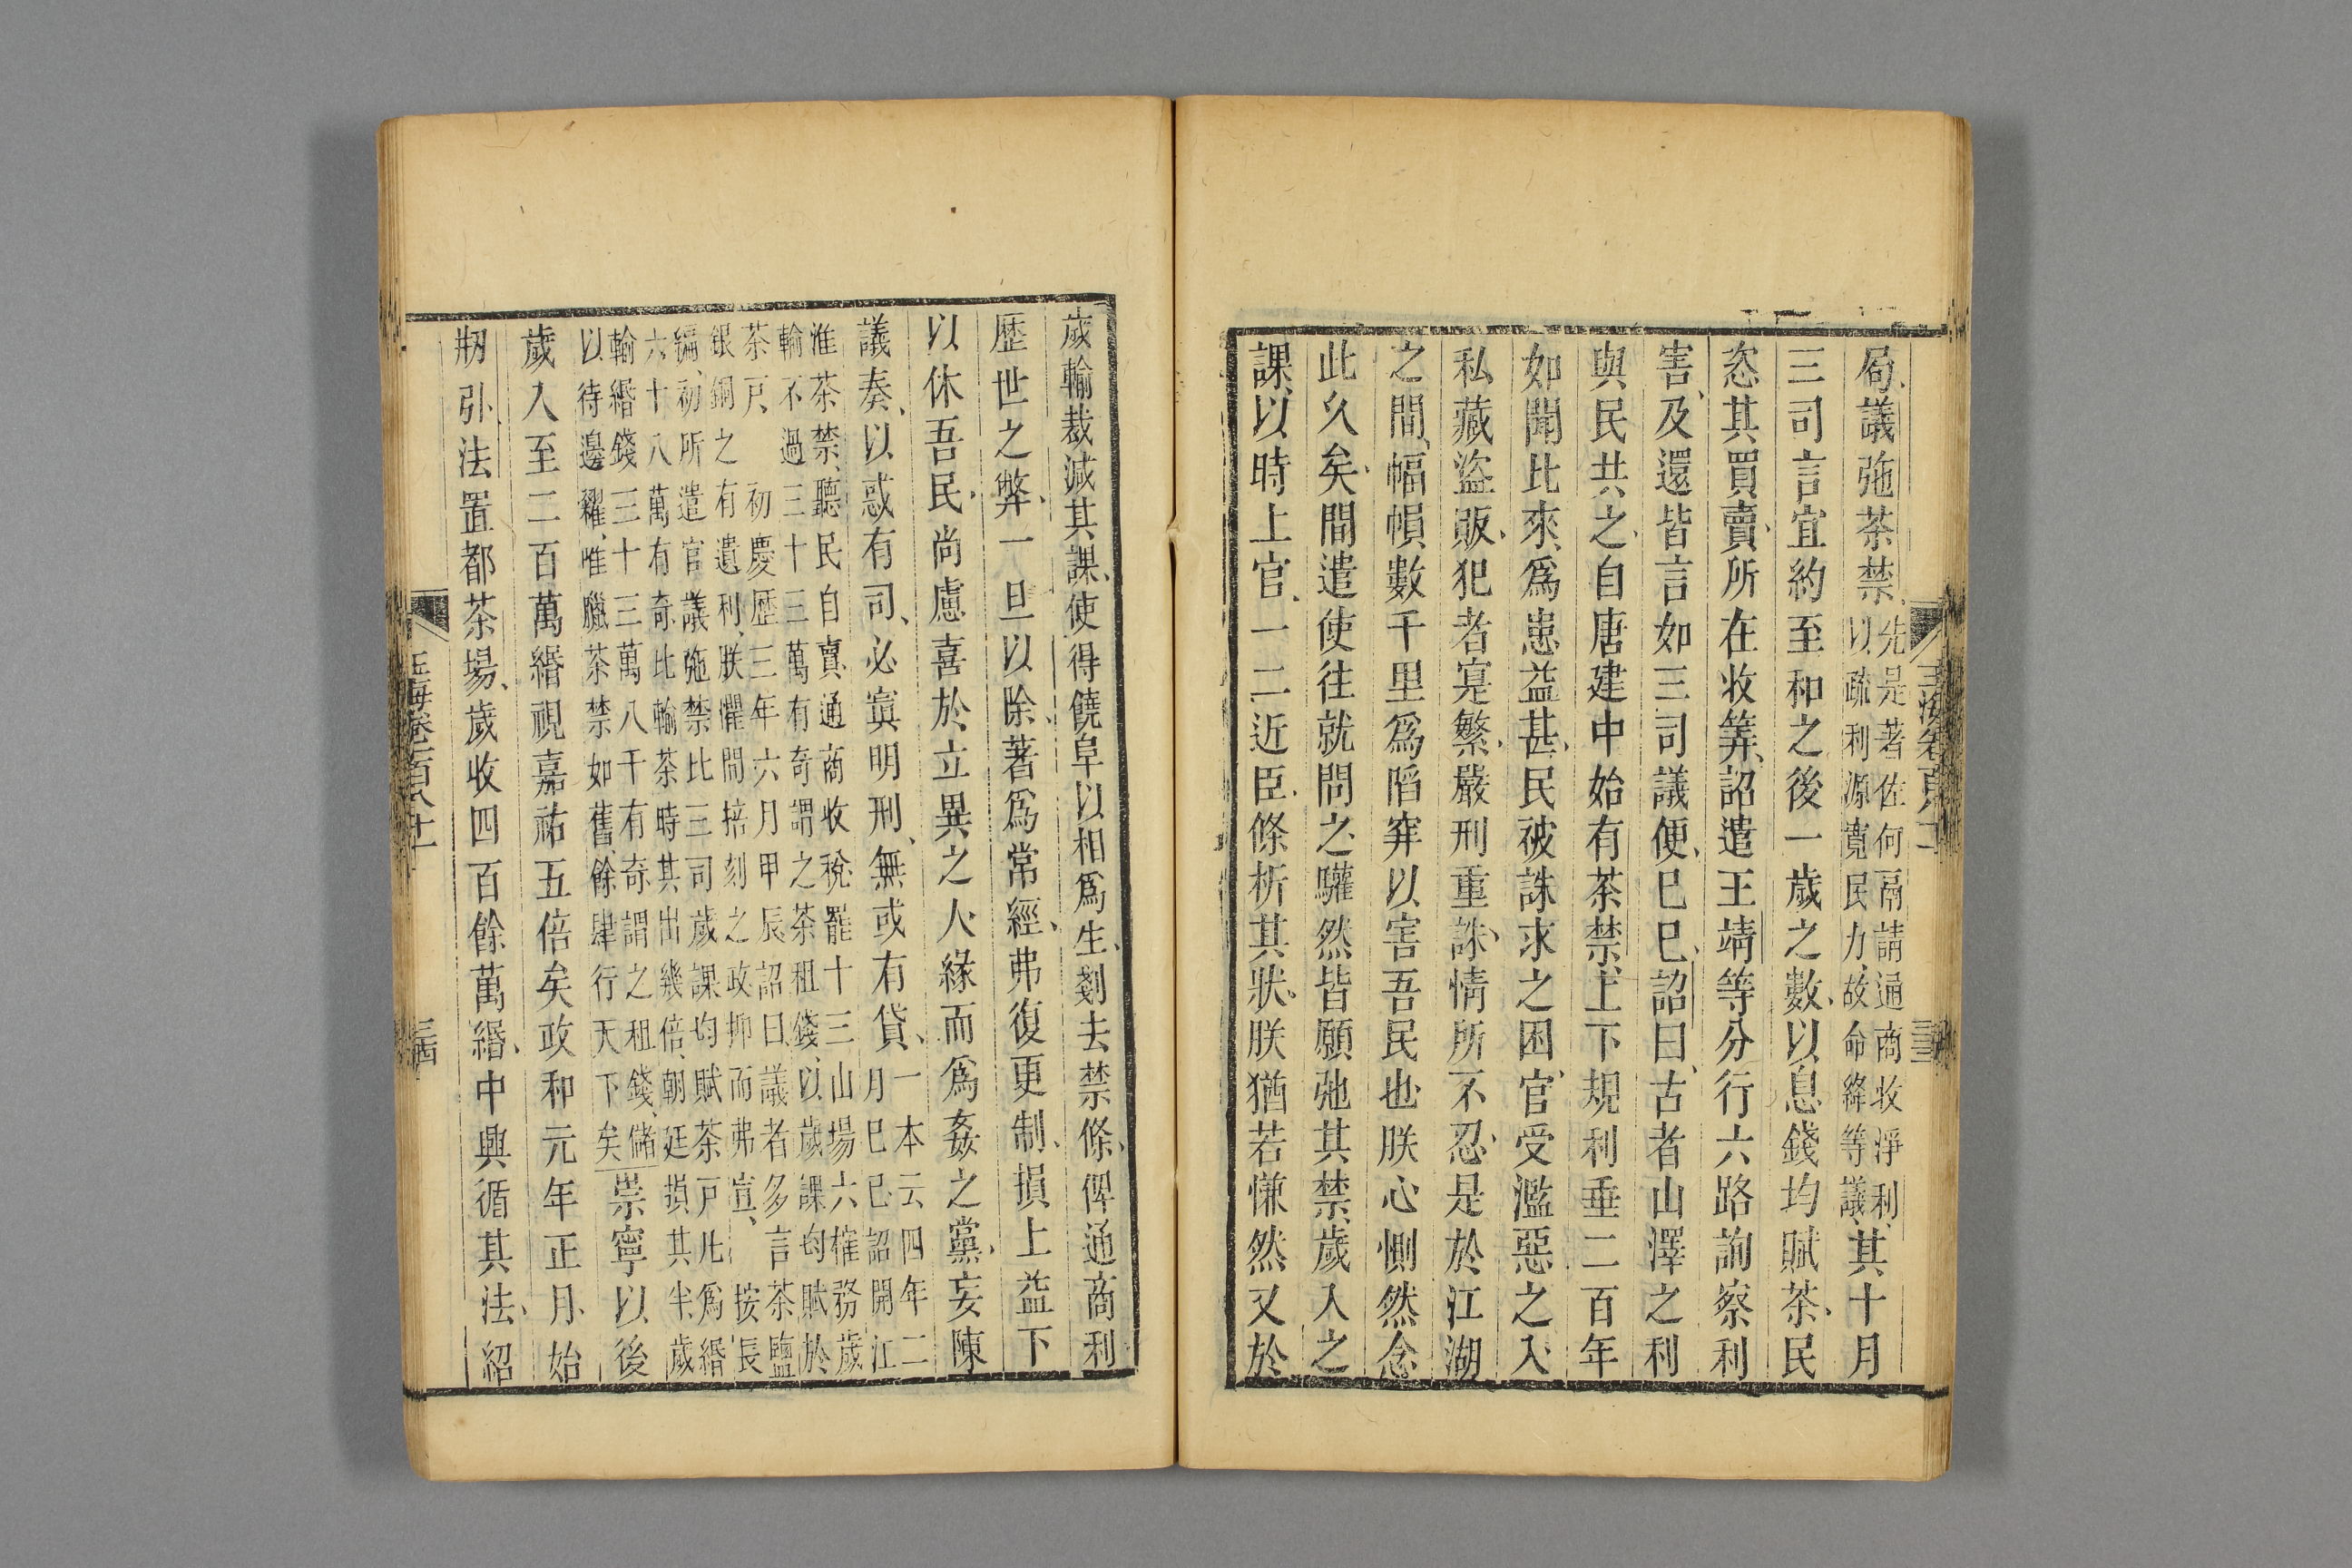 局議弛茶禁先是著佐何鬲請通商收淨利
以疏利源寬民力故命絳等議其十月
三司言宜約至和之後一歲之數以息錢均賦茶民
恣其買賣所在收筭詔遣王靖等分行六路詢察利
害及還皆言如三司議便巳巳詔曰古者山澤之利
與民共之自唐建中始有茶禁上下規利垂二百年
如聞比來爲患益甚民被誅求之困官受濫惡之入
私藏盜販犯者寔繁嚴刑重誅情所不忍是於江湖
之間幅幀數千里爲陷穽以害吾民也朕心惻然念
此久矣間遣使往就問之驩然皆願弛其禁歲入之
課以時上官一二近臣條析其狀朕猶若慊然又於
歲輸裁減其課使得饒阜以相爲生剗去禁條俾通商利
歷世之弊一旦以除著爲常經弗復更制損上益下
以休吾民尚慮喜於立異之人緣而爲姦之黨妄陳
議奏以惑有司必寘明刑無或有貸一本云四年二
月巳巳詔開江
淮茶禁聽民自賣通商收稅罷十三山場六榷務歲
輸不過三十三萬有奇謂之茶租錢以歲課均賦於
茶戶 初慶歷三年六月甲辰詔曰議者多言茶鹽
銀銅之有遺利朕懼間掊刻之政抑而弗宣 按長
編初所遣官議弛禁比三司歲課均賦茶戶凡爲緡
六十八萬有奇比輸茶時其出幾倍朝廷損其半歲
輸緡錢三十三萬八千有奇謂之租錢儲
以待邊糴唯臘茶禁如舊餘肆行天下矣崇寧以後
歲入至二百萬緡視嘉祐五倍矣政和元年正月始
剏引法置都茶場歲收四百餘萬緡中興循其法紹
玉海卷一百八十一 三四